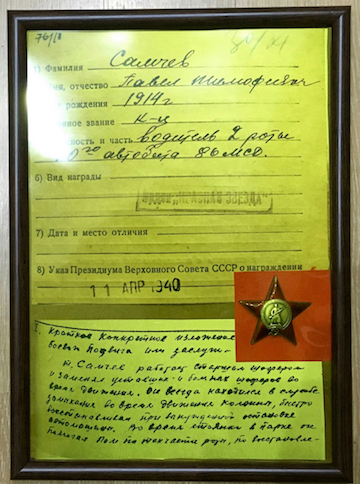 76/11
1) Фамилия Самчев
ия, отчество Павел Тимофеевич
рождения 1914 г
нное звание к-ц
ность и часть водитель 2 роты
автобата 86 МСД.
6) Вид награды
ОРДЕН „КРАСНАЯ ЗВЕЗДА"
7) Дата и место отличия
8) Указ Президиума Верховного Совета СССР о награждении
11 АПР 1940
I. Краткое конкретное изложение
боевых подвига или заслуг.
т. Самчев работал старшим шофером
и заменял уставших и больных шоферов во
время движения. Он всегда находился в службе
замыкания во время движения колонны, быстро
восстанавливая при вынужденной остановке
автомашины. Во время стоянки в парке он